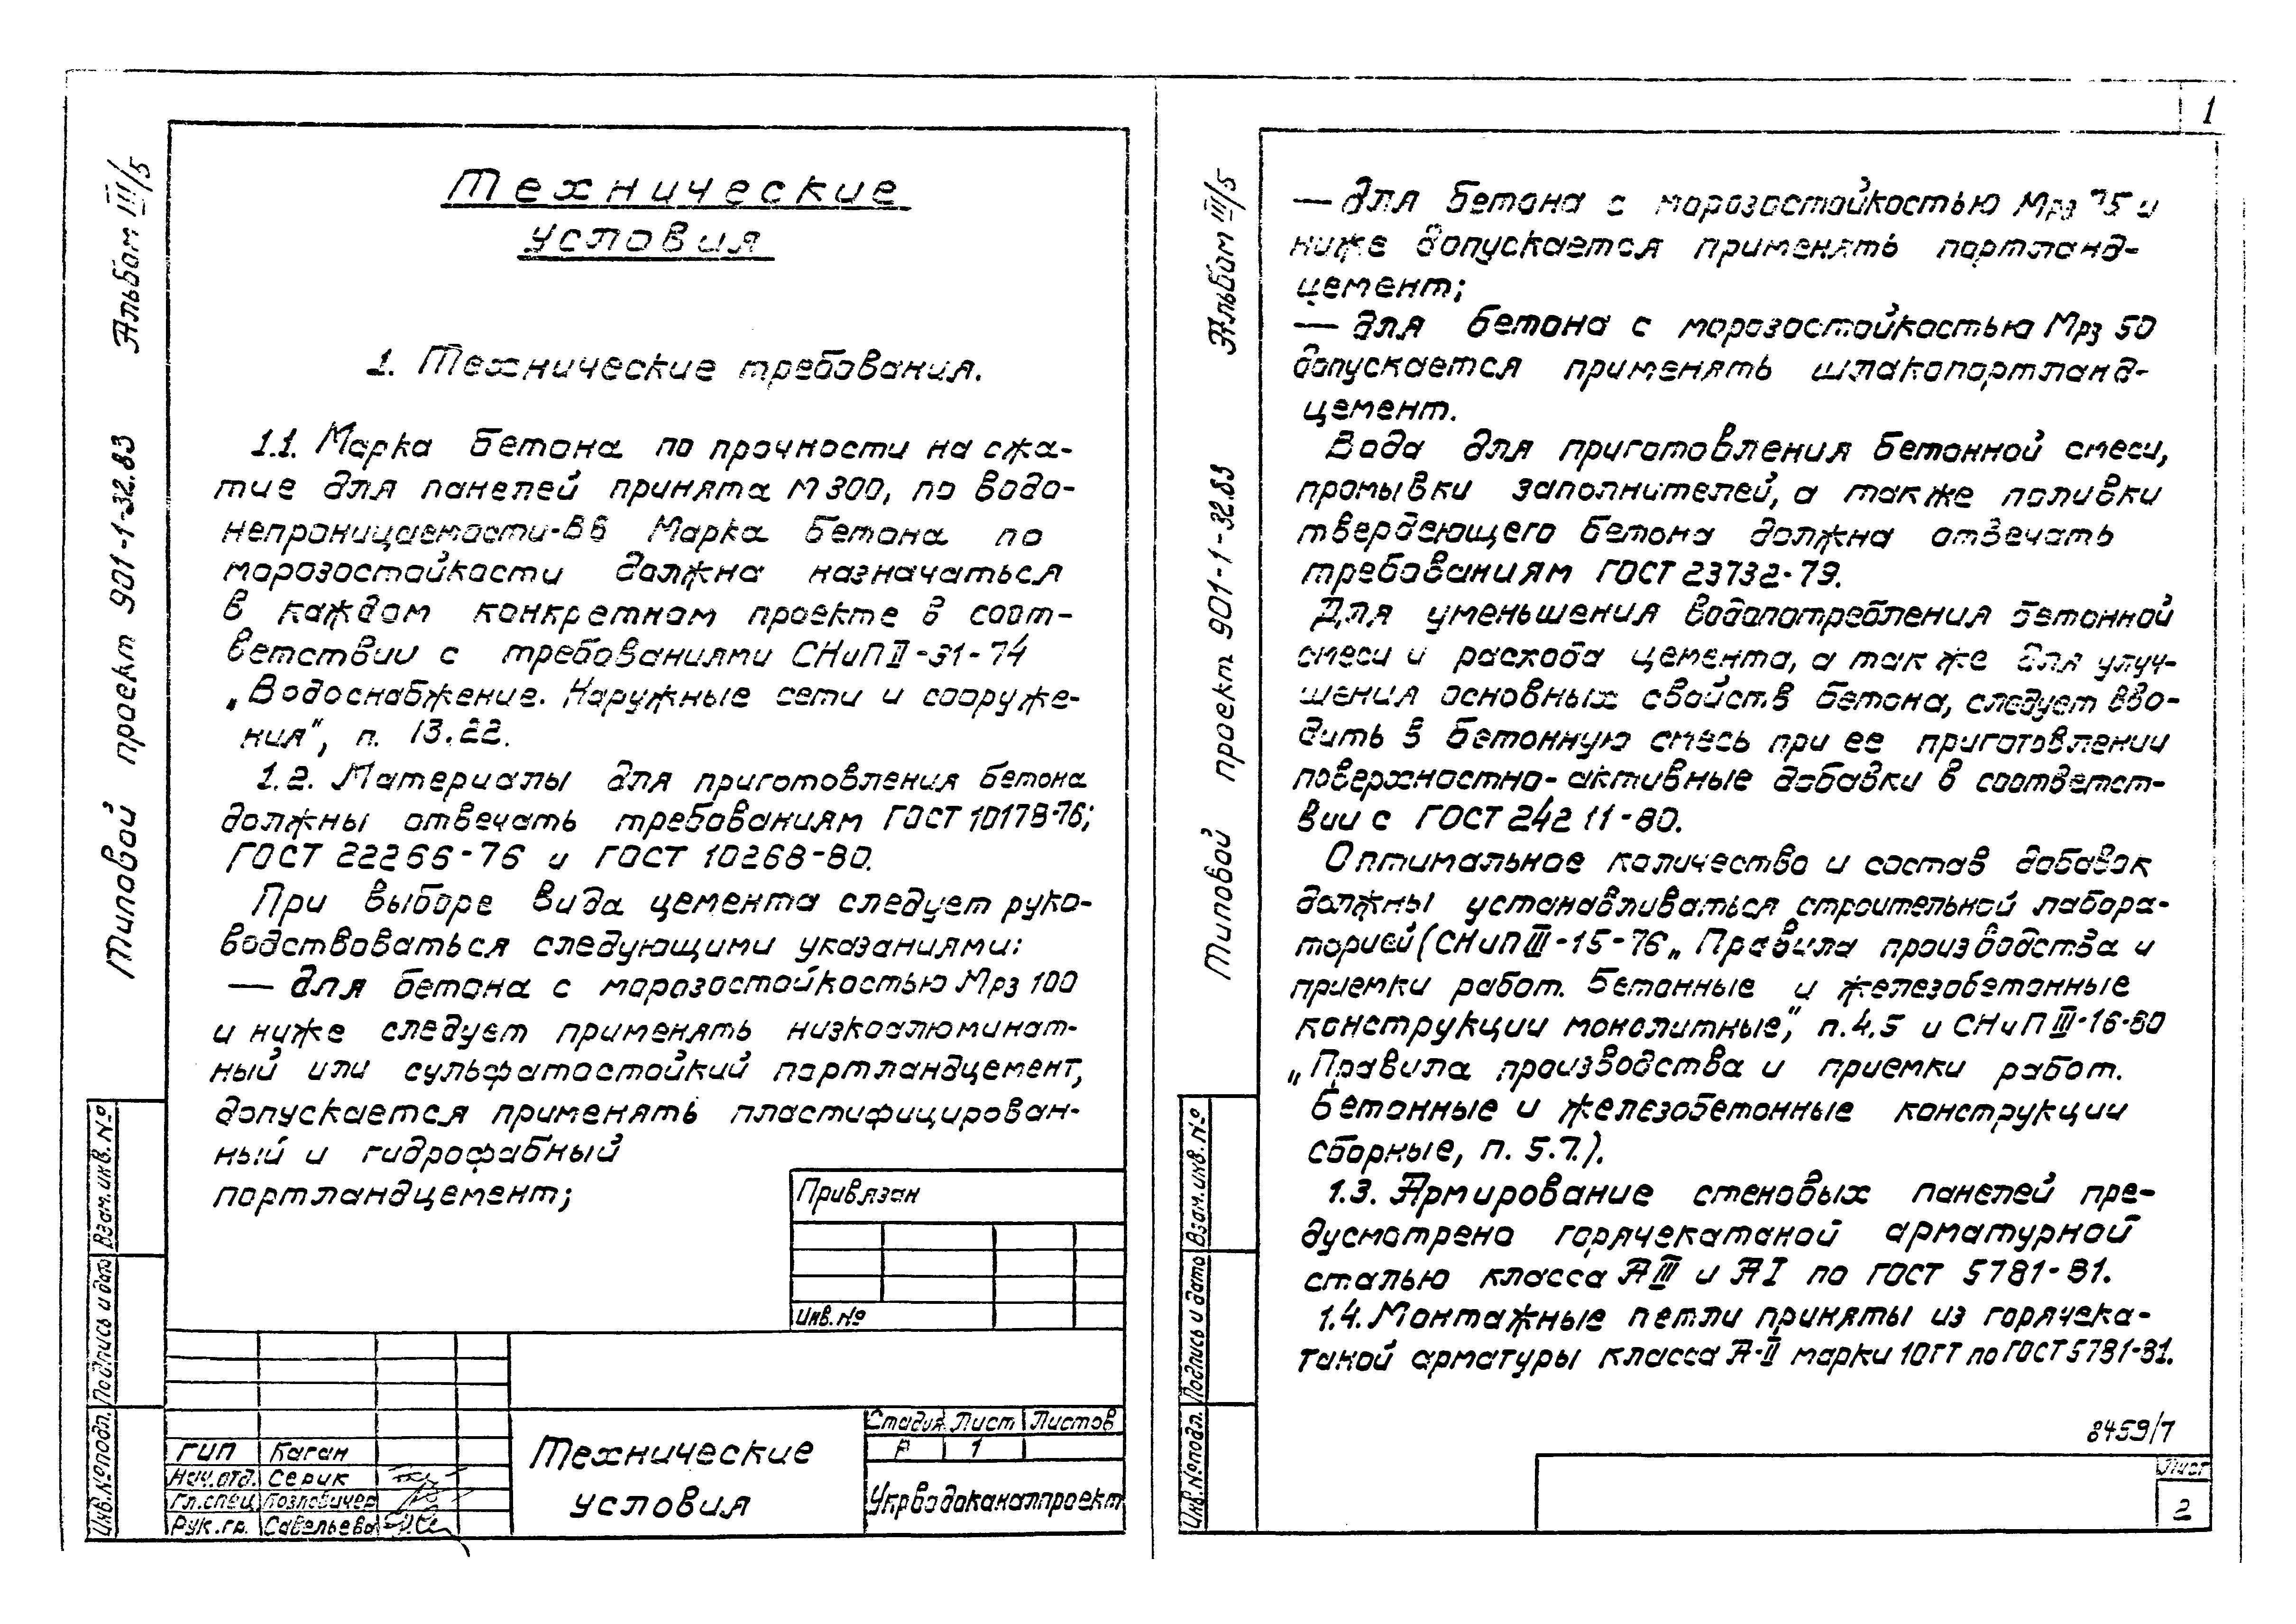 Технические
условия
1. Технические требования.
1.1. Марка бетона по прочности на сжа-
тие для панелей принята М300, по водо-
непроницаемости-В6 Марка бетона по
морозостойкости должна назначаться
в каждом конкретном проекте в соот-
ветствии с требованиями СНиП II-31-74
„Водоснабжение. Наружные сети и сооруже-
ния", п. 13.22.
1.2. Материалы для приготовления бетона
должны отвечать требованиям ГОСТ 10178-76;
ГОСТ 22266-76 и ГОСТ 10268-80.
При выборе вида цемента следует руко-
водствоваться следующими указаниями:
— для бетона с морозостойкостью Мрз 100
и ниже следует применять низкоалюминат-
ный или сульфатостойкий портландцемент,
допускается применять пластифицирован-
ный и гидрофабный
портландцемент;
Привязан
Инв. №
ГИП Каган
Нач.отд. Серик
Гл.спец.
Рук.гр. Савельева
Технические
условия
Стадия Лист Листов
Р 1
Укрводоканалпроект
Типовой проект 901-1-32.83 Альбом III/5
Инв.№подл. Подпись и дата Взам.инв.№
1
— для бетона с морозостойкостью Мрз 75 и
ниже допускается применять портланд-
цемент;
— для бетона с морозостойкостью Мрз 50
допускается применять шлакопортланд-
цемент.
Вода для приготовления бетонной смеси,
промывки заполнителей, а также поливки
твердеющего бетона должна отвечать
требованиям ГОСТ 23732-79.
Для уменьшения водопотребления бетонной
смеси и расхода цемента, а также для улуч-
шения основных свойств бетона, следует вво-
дить в бетонную смесь при ее приготовлении
поверхностно-активные добавки в соответст-
вии с ГОСТ 24211-80.
Оптимальное количество и состав добавок
должны устанавливаться строительной лабора-
торией (СНиП III-15-76 „Правила производства и
приемки работ. Бетонные и железобетонные
конструкции монолитные", п.4.5 и СНиП III-16-80
„Правила производства и приемки работ.
Бетонные и железобетонные конструкции
сборные, п. 5.7.).
1.3. Армирование стеновых панелей пре-
дусмотрено горячекатаной арматурной
сталью класса А III и А I по ГОСТ 5781-81.
1.4. Монтажные петли приняты из горячека-
таной арматуры класса А-II марки 10ГТ по ГОСТ 5781-81.
8459/7
Лист
2
Типовой проект 901-1-32.83 Альбом III/5
Инв.№подл. Подпись и дата Взам.инв.№